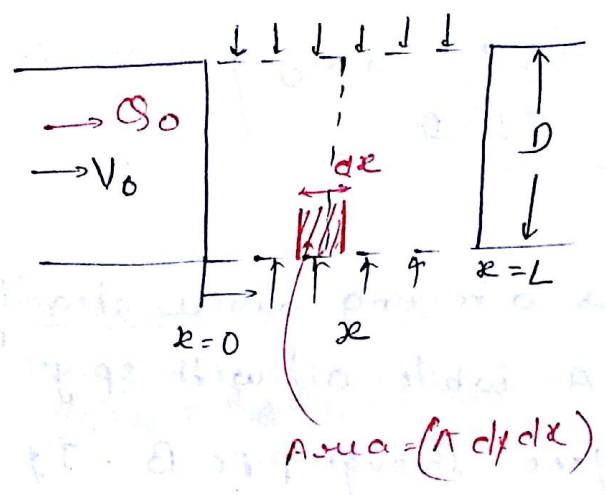 Q₀
V₀
D
dx
x = L
x = 0
x
Area = (π dy dx)